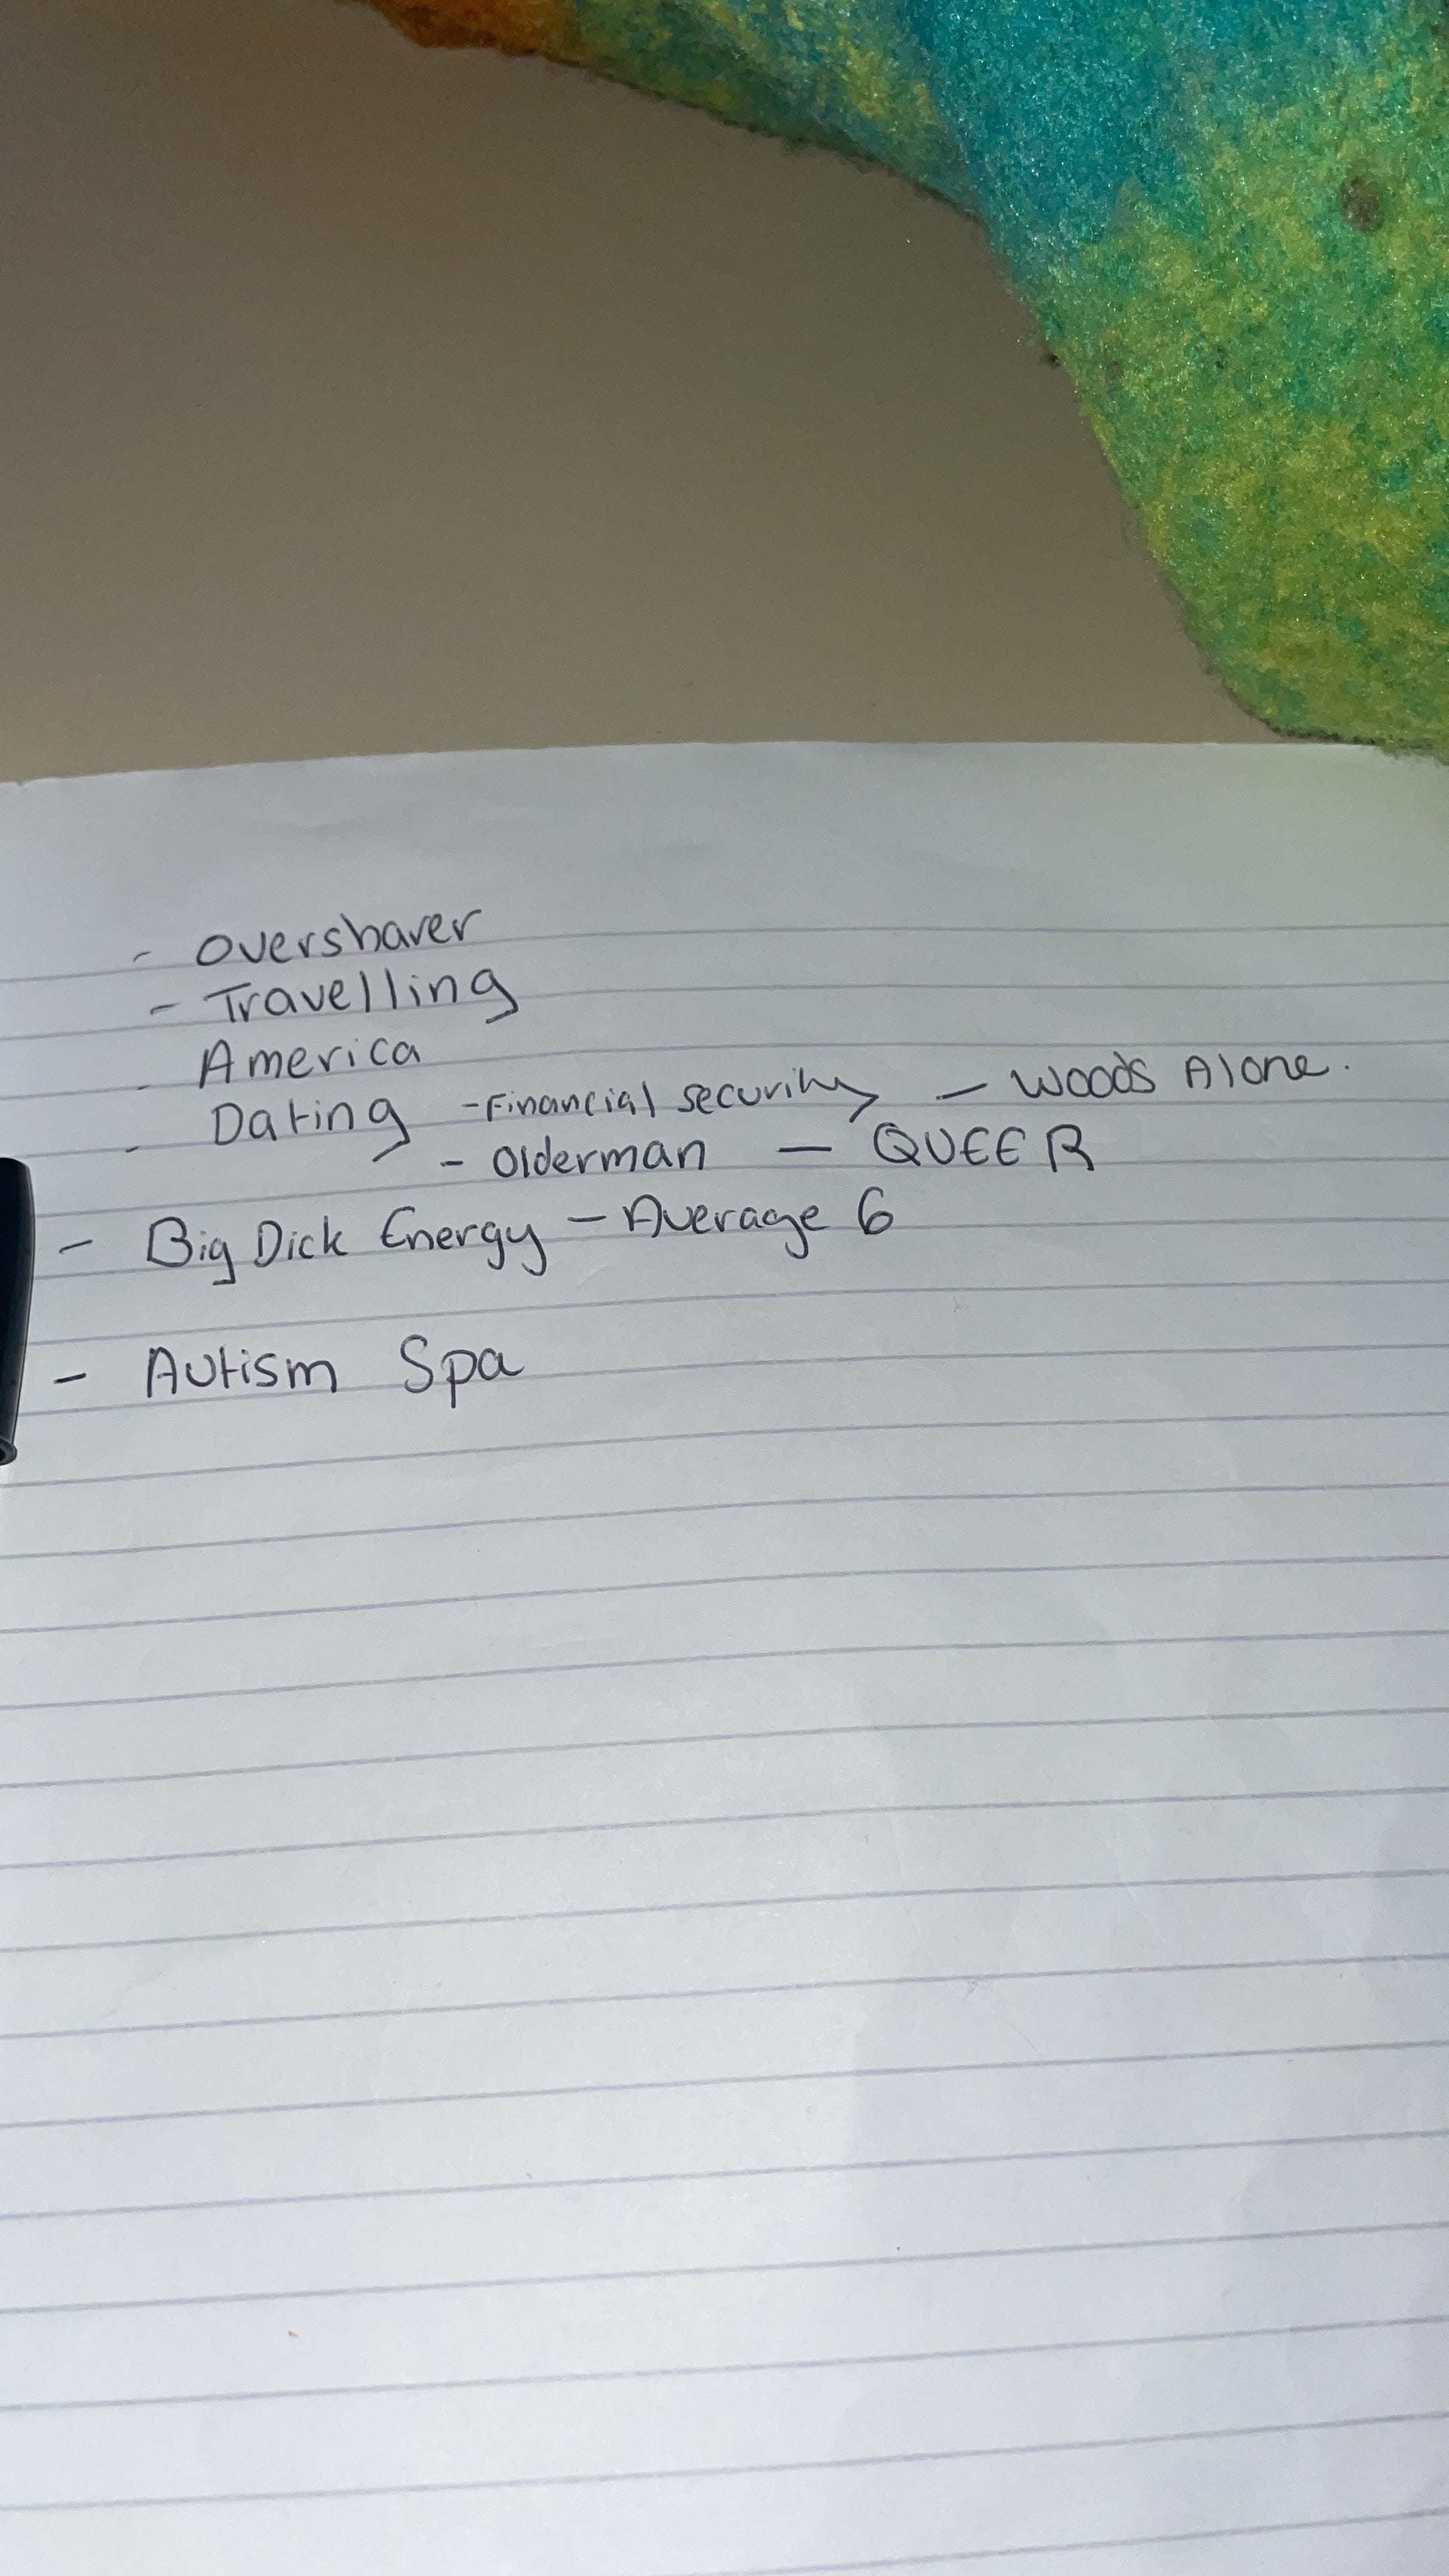 - Oversharer
- Travelling
- America
- Dating - Financial security - Woods Alone.
- Olderman - QUEER
- Big Dick Energy - Average 6
- Autism Spa